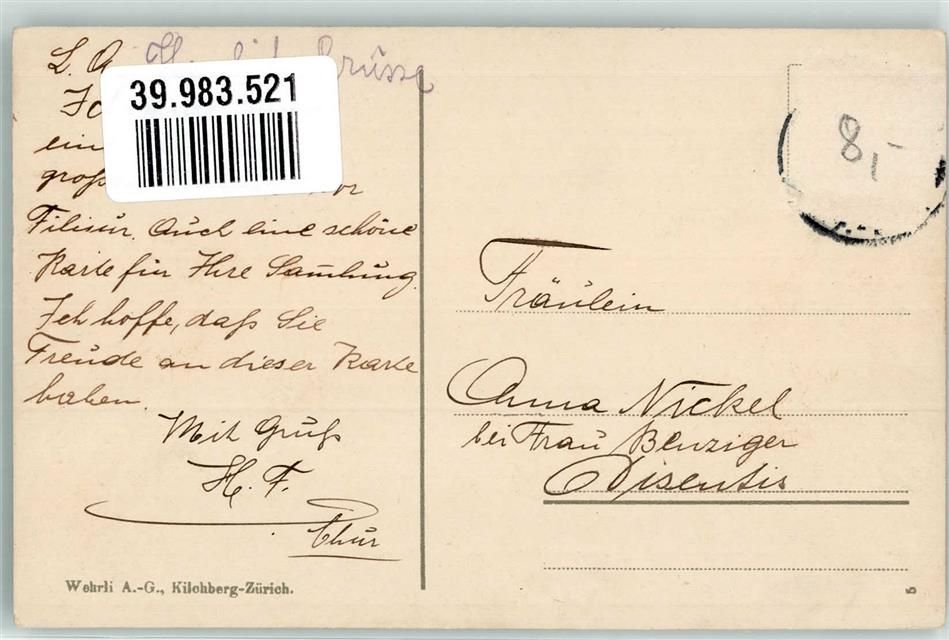 L. A.
Grüsse
39.983.521
ein
groß
Filisur. Auch eine schöne
Karte für Ihre Samlung.
Ich hoffe, daß Sie
Freude an dieser Karte
haben.
Mit Gruß
H. F.
Chur
Wehrli A.-G., Kilchberg-Zürich.
8,-
Fräulein
Anna Nickel
bei Frau Benziger
Disentis
5